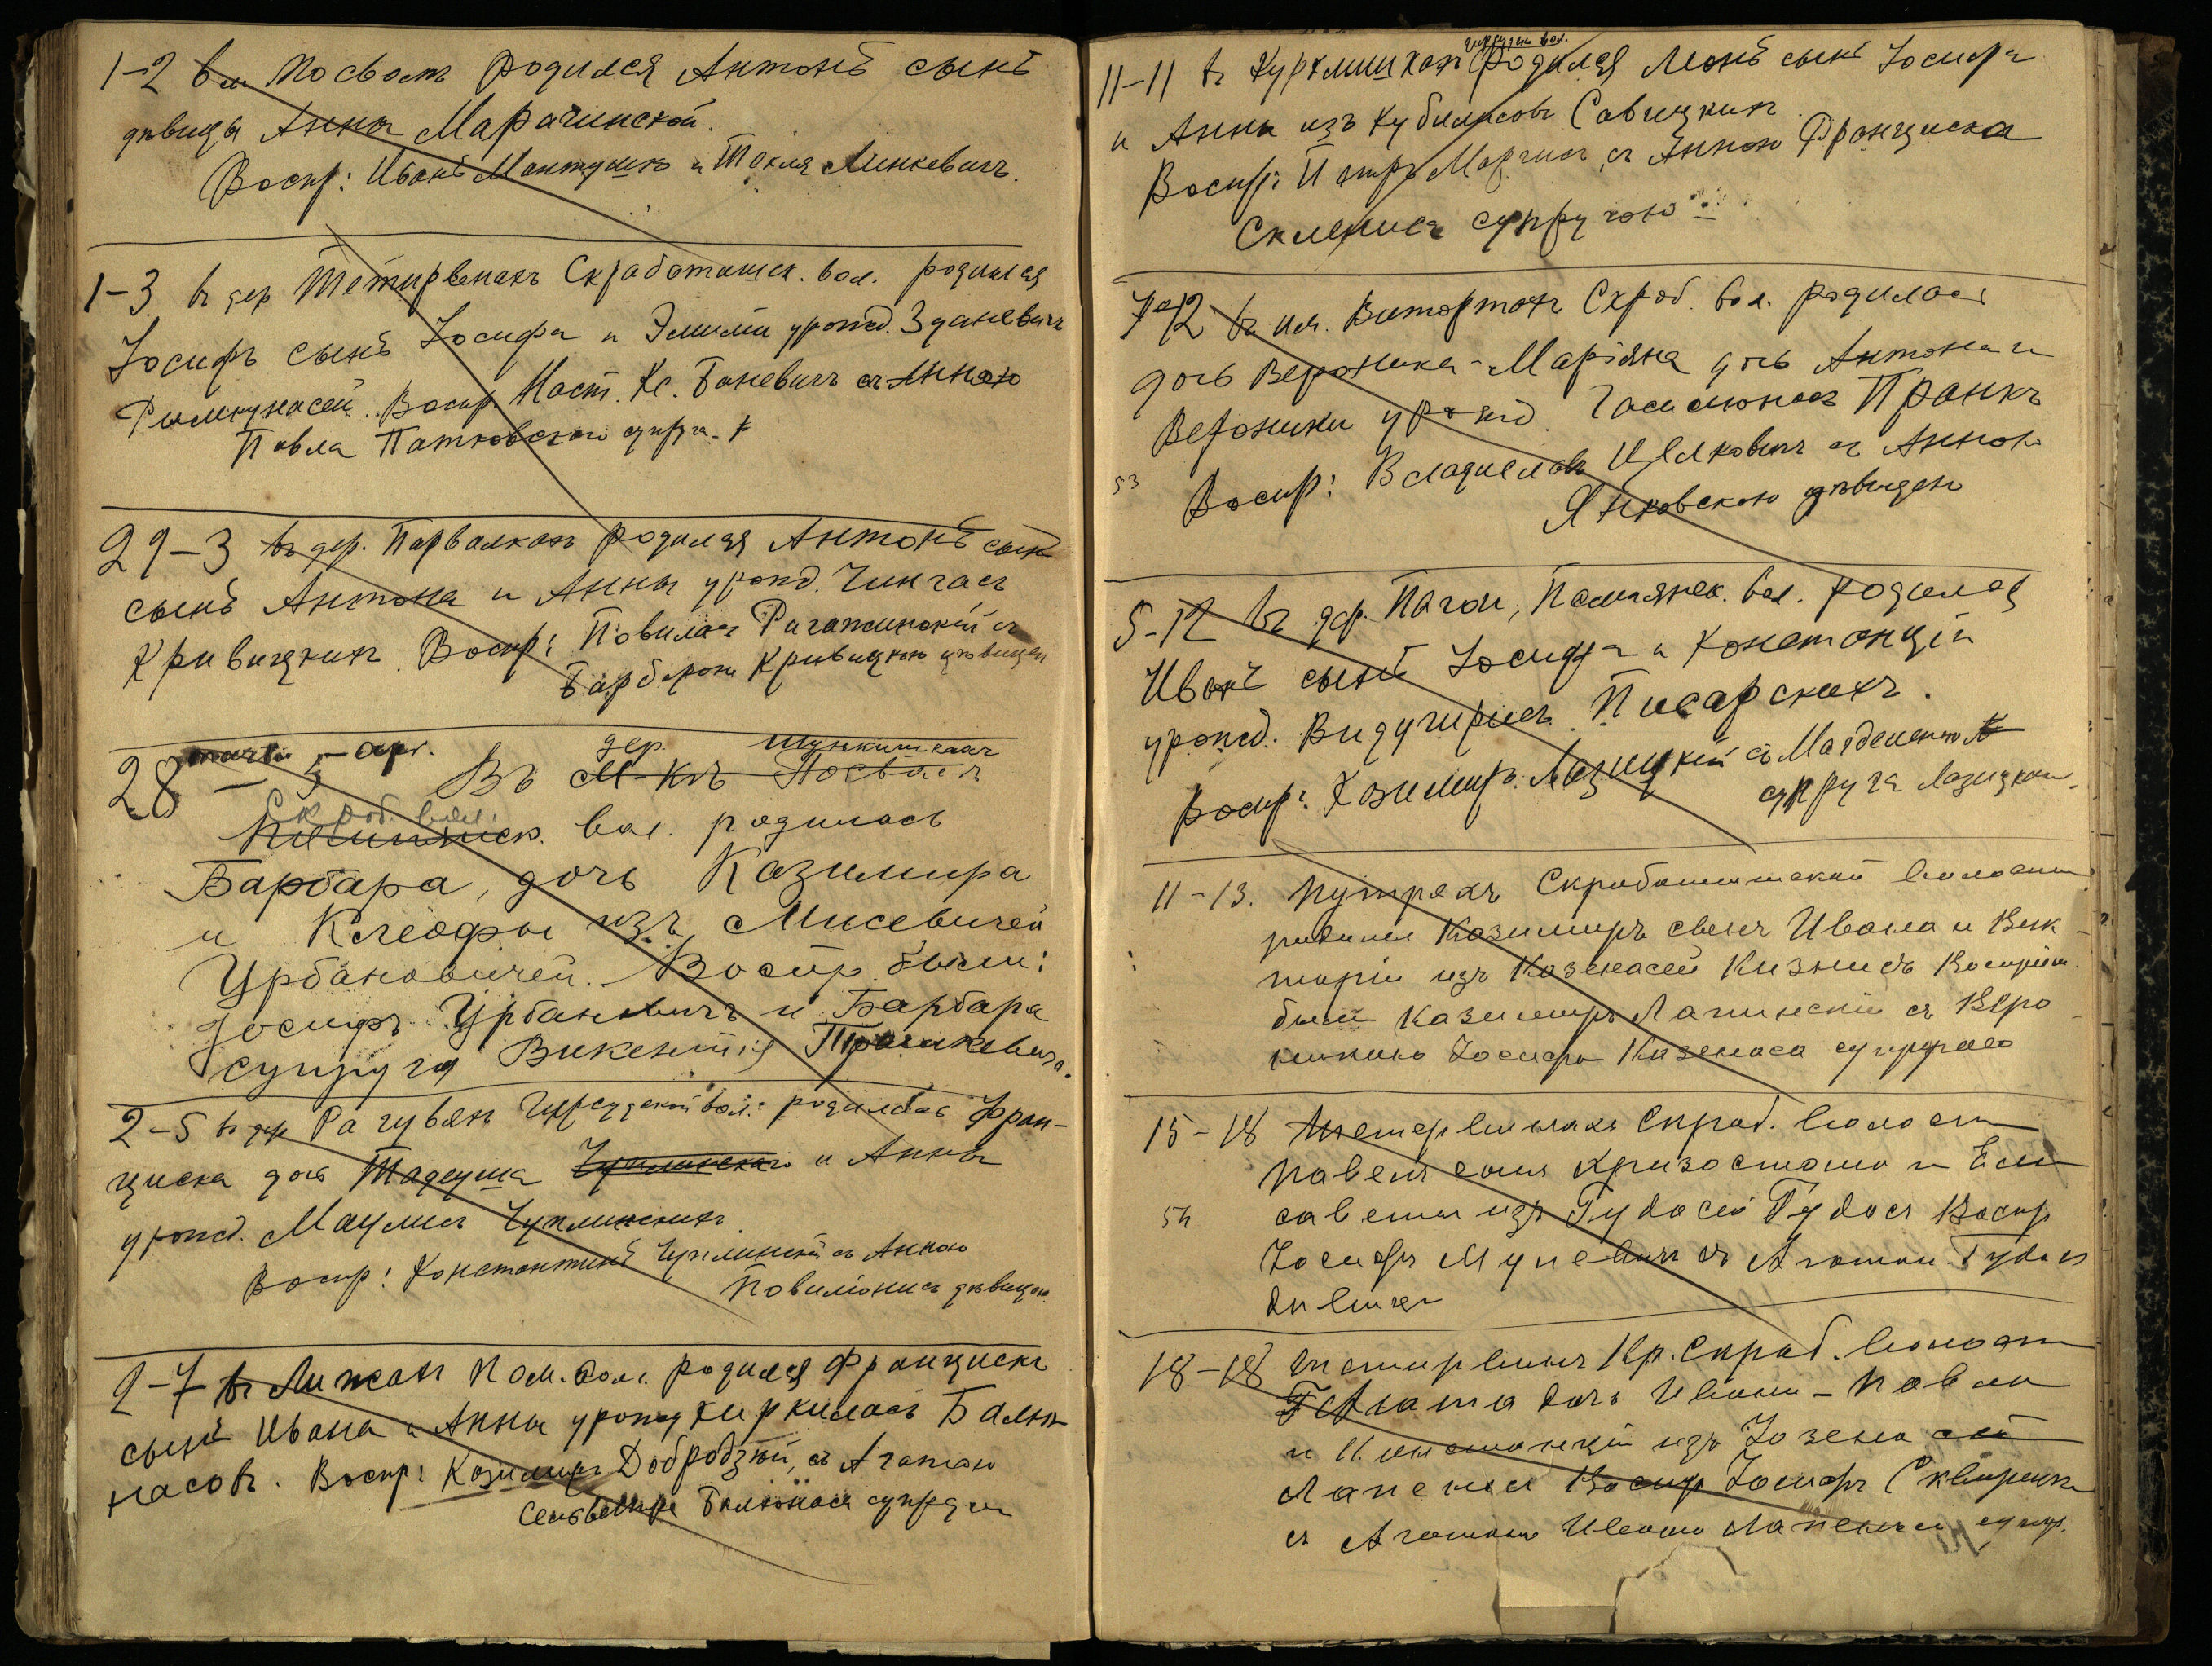 1-2 въ м. Посволь родился Антонъ сынъ
дѣвицы Анны Марачинской.
Воспр: Иванъ Мантушко и Текля Минкевичъ.
1-3 въ дер Тетирвенахъ Скработишск. вол. родился
Іосифъ сынъ Іосифа и Эмилии урожд. Зданевичъ
Римкунасей. Воспр. Наст. Кс. Баневичъ съ Анною
Павла Патковскаго супр.
29-3 въ дер. Парвалкахъ родился Антонъ сынъ
сынъ Антона и Анны урожд. Чингасъ
Кривицкихъ. Воспр: Повиласъ Рагажинскій съ
Барбарою Кривицкою дѣвицею
28 марта - 5 апр. Въ дер. Шункишкахъ
М-кѣ Посволѣ
Скроб. вол.
вол. родилась
Барбара, дочь Казимира
и Клеофы изъ Мисевичей
Урбановичей. Воспр. были:
Іосифъ Урбановичъ и Барбара
супруга Викентія Трашкевича.
2-5 въ дер Рагувѣ вол. родилась Фран-
циска дочь Тадеуша Чуплинскаго и Анны
урожд. Маулисъ Чуплинскихъ.
Воспр: Константинъ Чуплинскій съ Анною
Повилонисъ дѣвицею.
2-7 въ Пом. вол. родился Францискъ
сынъ Ивана и Анны урожд Киркиласъ Балю-
насовъ. Воспр: Казимиръ Добродзѣй, съ Агатою
Сильвестра Балюнаса супругою
11-11 въ родился Леонъ сынъ Іосифа
и Анны изъ Кубилюсовъ Савицкихъ
Воспр: Петръ Маргисъ съ Анною Франциска
Скленисъ супругою
7-12 въ им. Скроб. вол. родилась
дочь Вероника-Маріяна дочь Антона и
Вероники урожд. Пранкъ
53
Воспр: Владиславъ съ Анною
Янковскою дѣвицею
5-12 въ дер. Паги, вол. родился
Иванъ сынъ Іосифа и Констанціи
урожд. Видугирисъ Писарскихъ.
Воспр: Казимиръ Лазицкій съ Магдаленою
супруга Лазицкаго.
11-13. Путряхъ Скработишской волости
родился Казимиръ сынъ Ивана и Вик-
торіи изъ Казенасей Кизнисъ Воспріем.
были Казимиръ Лапинскій съ Веро-
никою Іосифа Казенаса супругою
15-18 Скраб. волости
Павелъ сынъ Хризостома и Ели-
саветы изъ Гудасей Гудасъ Воспр
54
Іосифъ съ Агатою Гудасъ
дѣвицею
18-18 Скраб. волости
дочь Ивана-Павла
и Констанціи изъ
Лапенисъ Воспр Іосифъ
съ Агатою Ивана Лапениса супр.